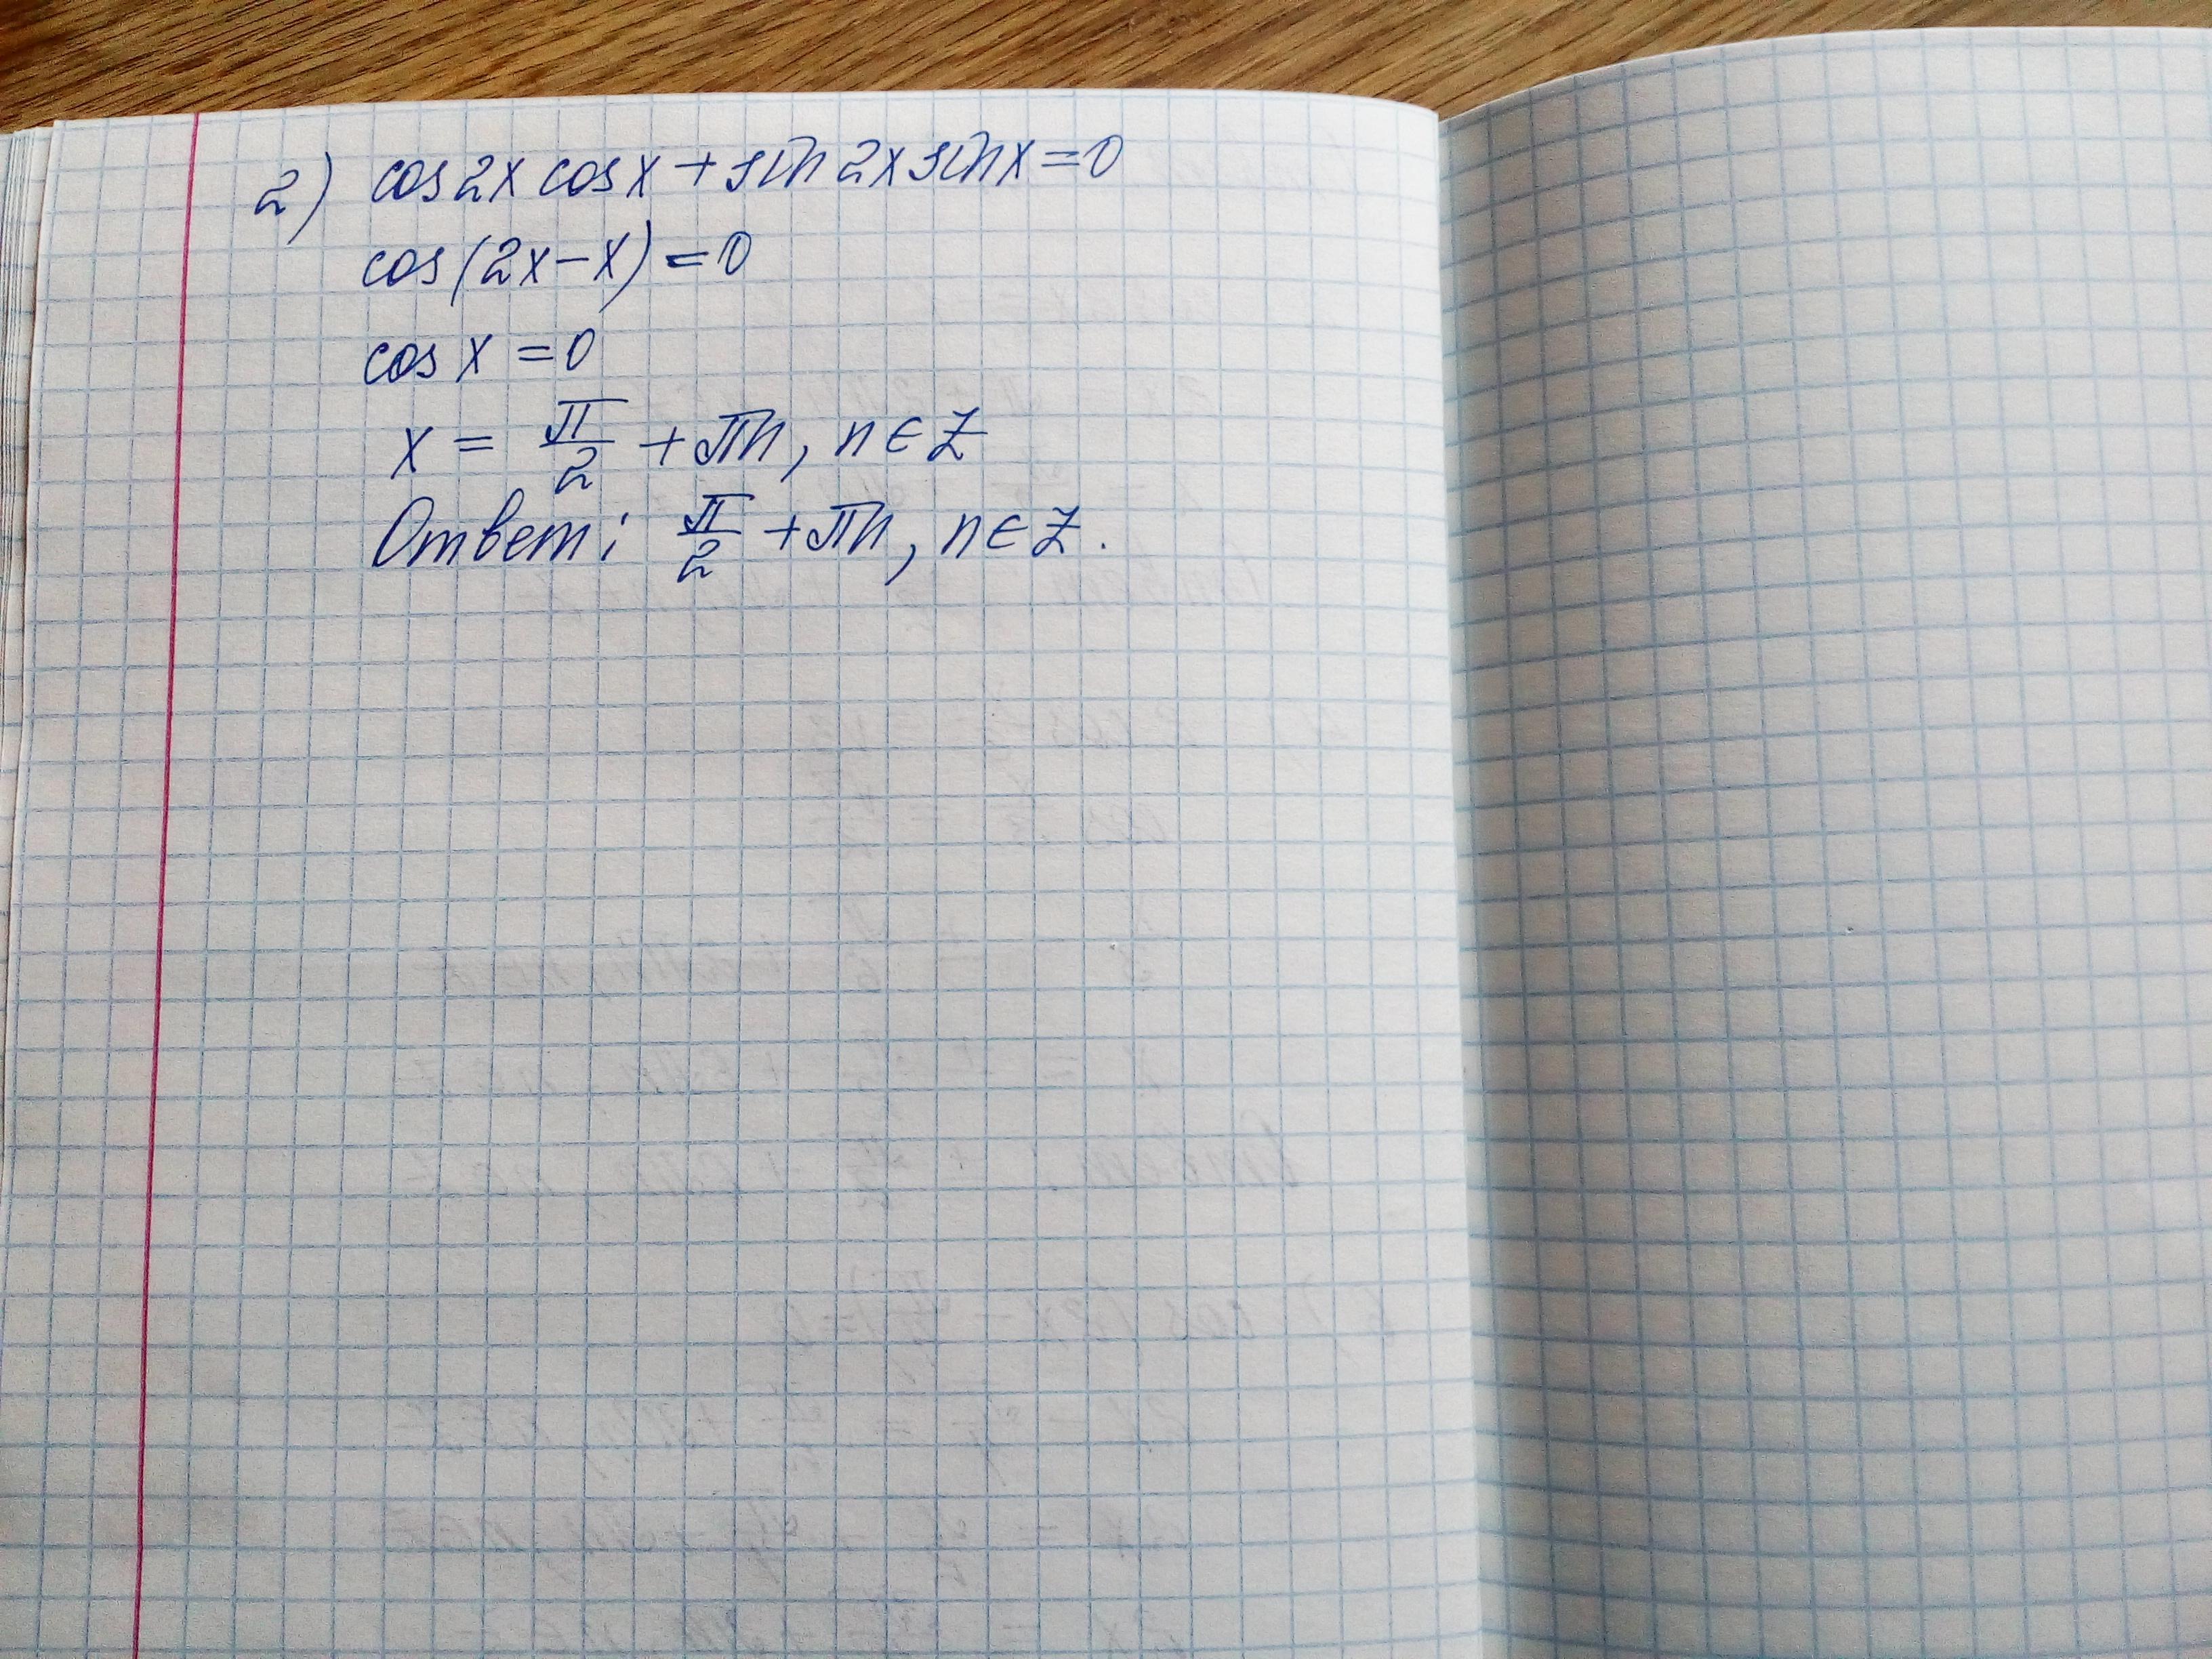 2) cos2x cosx + sin2x sinx = 0
cos(2x - x) = 0
cos x = 0
x = π/2 + πn, n ∈ Z
Ответ: π/2 + πn, n ∈ Z.